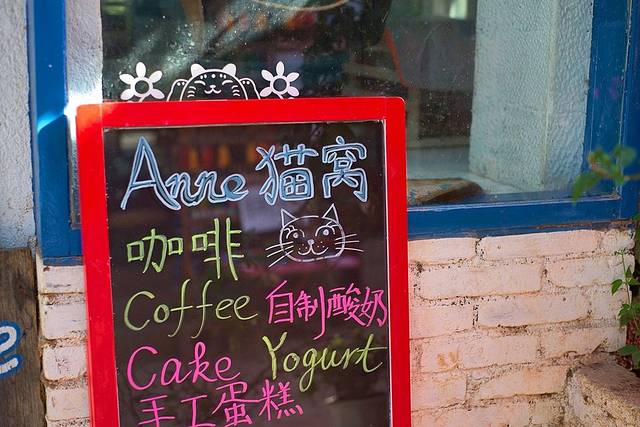 Anne 猫窝
咖啡
Coffee 自制酸奶
Cake Yogurt
手工蛋糕